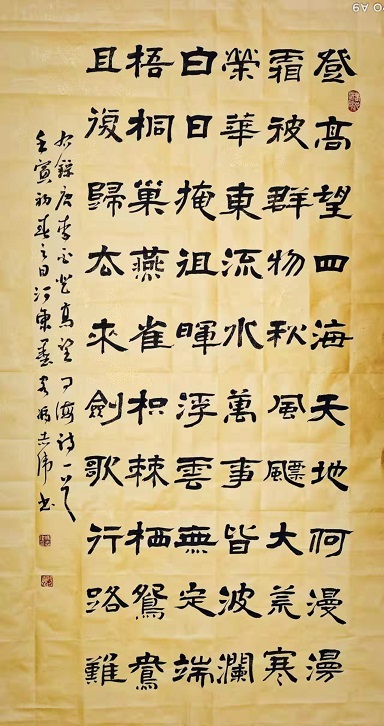 登高望四海天地何漫漫
霜被群物秋風飄大荒寒
榮華東流水萬事皆波瀾
白日掩徂暉浮雲無定端
梧桐巢燕雀枳棘栖鴛鴦
且復歸去來劍歌行路難
右錄唐李白登高望四海詩一首
壬寅初春之日河東志偉書
PO A9